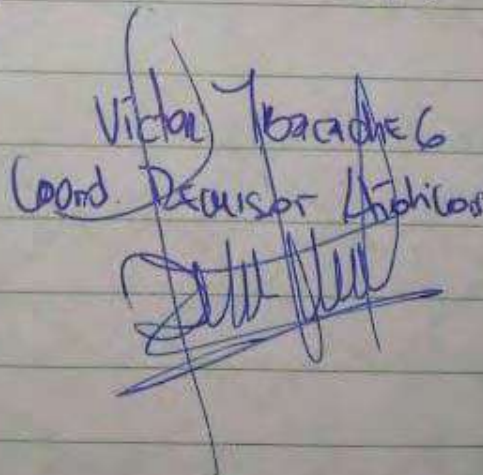 Victor Ibacache G
Coord. Recursos Hídricos